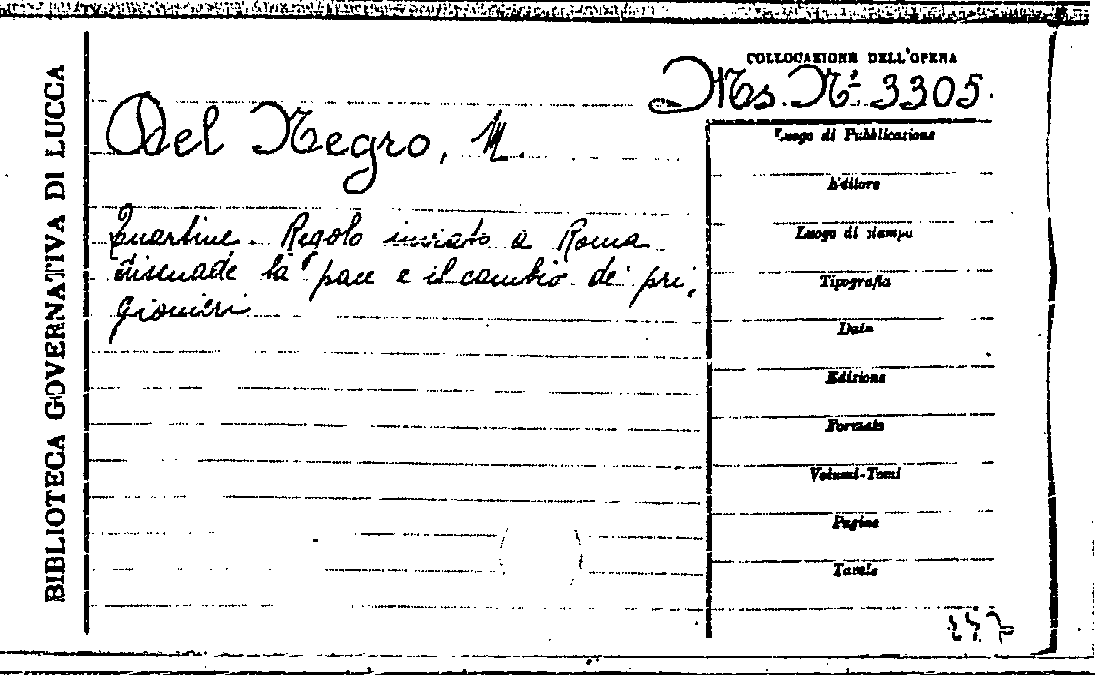 BIBLIOTECA GOVERNATIVA DI LUCCA
COLLOCAZIONE DELL'OPERA
Ms. N.º 3305.
Del Negro, M.
Quartine. Regolo inviato a Roma
dissuade la pace e il cambio dei pri,
gionieri
Luogo di Pubblicazione
Editore
Luogo di stampa
Tipografia
Data
Edizione
Formato
Volumi-Tomi
Pagine
Tavole